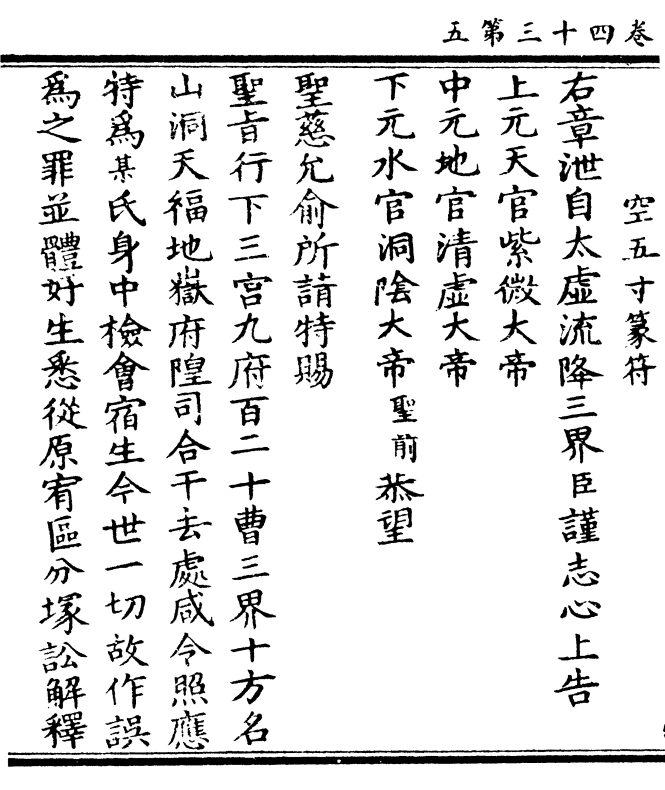 卷四十三第五
空五寸篆符
右章泄自太虛流降三界臣謹志心上告
上元天官紫微大帝
中元地官清虛大帝
下元水官洞陰大帝聖前恭望
聖慈允俞所請特賜
聖旨行下三宮九府百二十曹三界十方名
山洞天福地嶽府隍司合干去處咸令照應
特爲某氏身中檢會宿生今世一切故作誤
爲之罪並體好生悉從原宥區分塚訟解釋